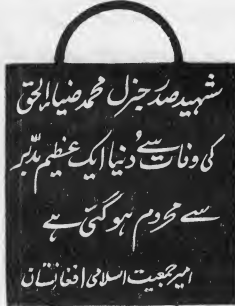 شہید صدر جنرل محمد ضیاء الحق
کی وفات سے دُنیا ایک عظیم مدّبر
سے محروم ہو گئی ہے
امیر جمعیت اسلامی افغانستان